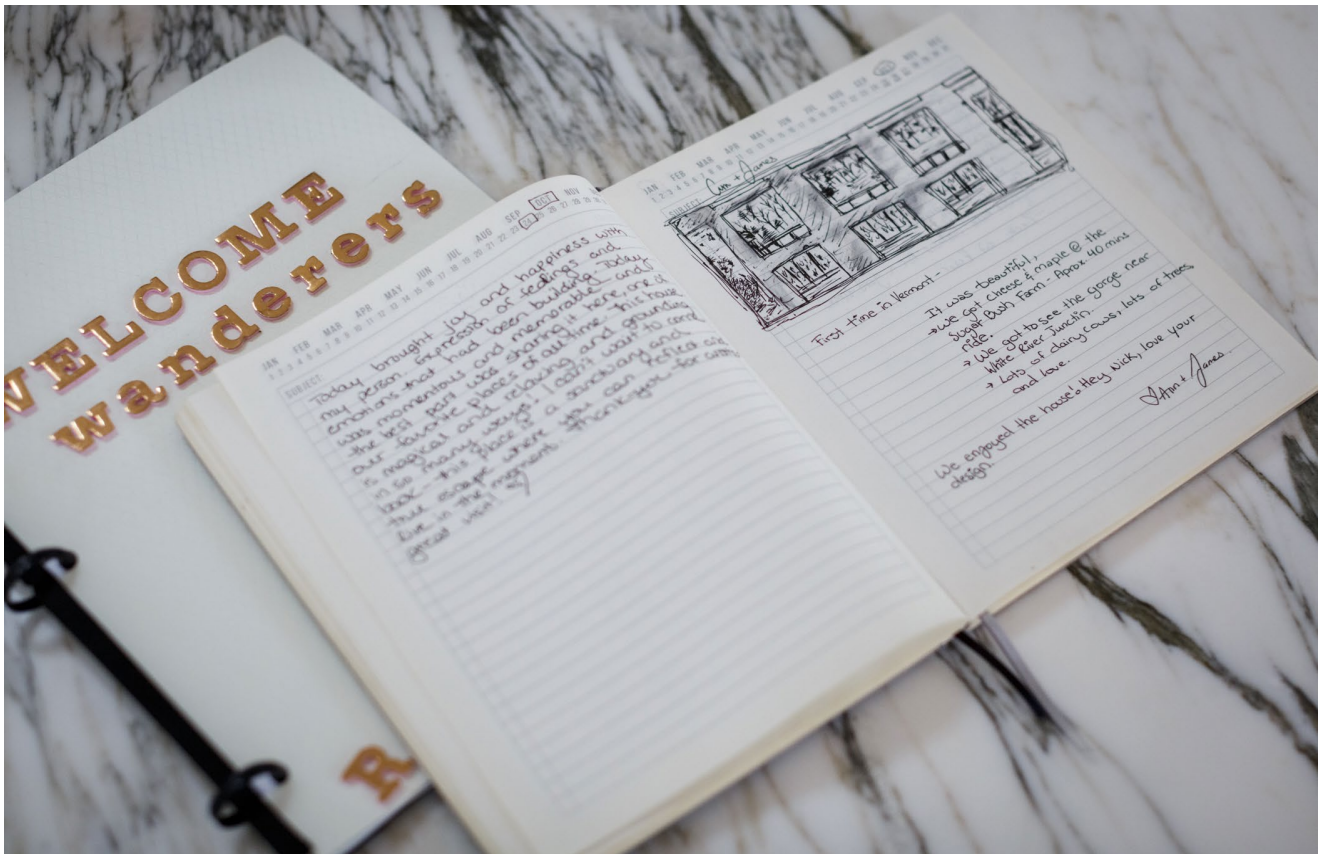 WELCOME
wanderers
R
JAN FEB MAR APR MAY JUN JUL AUG SEP OCT NOV
SUBJECT:
Today brought joy and happiness with
my person. Expression of feelings and
emotions that had been building. Today
was momentous and memorable and
the best part was sharing it here, one of
our favorite places of all time. This haus
is magical and relaxing and grounding
in so many ways. I can't wait to come
back - this place is a sanctuary and
true escape where you can reflect and
live in the moment. Thank you for
great visit!
JAN FEB MAR APR MAY JUN JUL AUG SEP OCT NOV DEC
SUBJECT: Ann + James
First time in Vermont -
It was beautiful,
→ We got cheese & maple @ the
Sugar Bush Farm - Aprox. 40 mins
ride.
→ We got to see the gorge near
White River Junctin.
→ Lots of dairy cows, lots of trees
and love.
We engoyed the house! Hey Nick, love your
design.
Ann + James